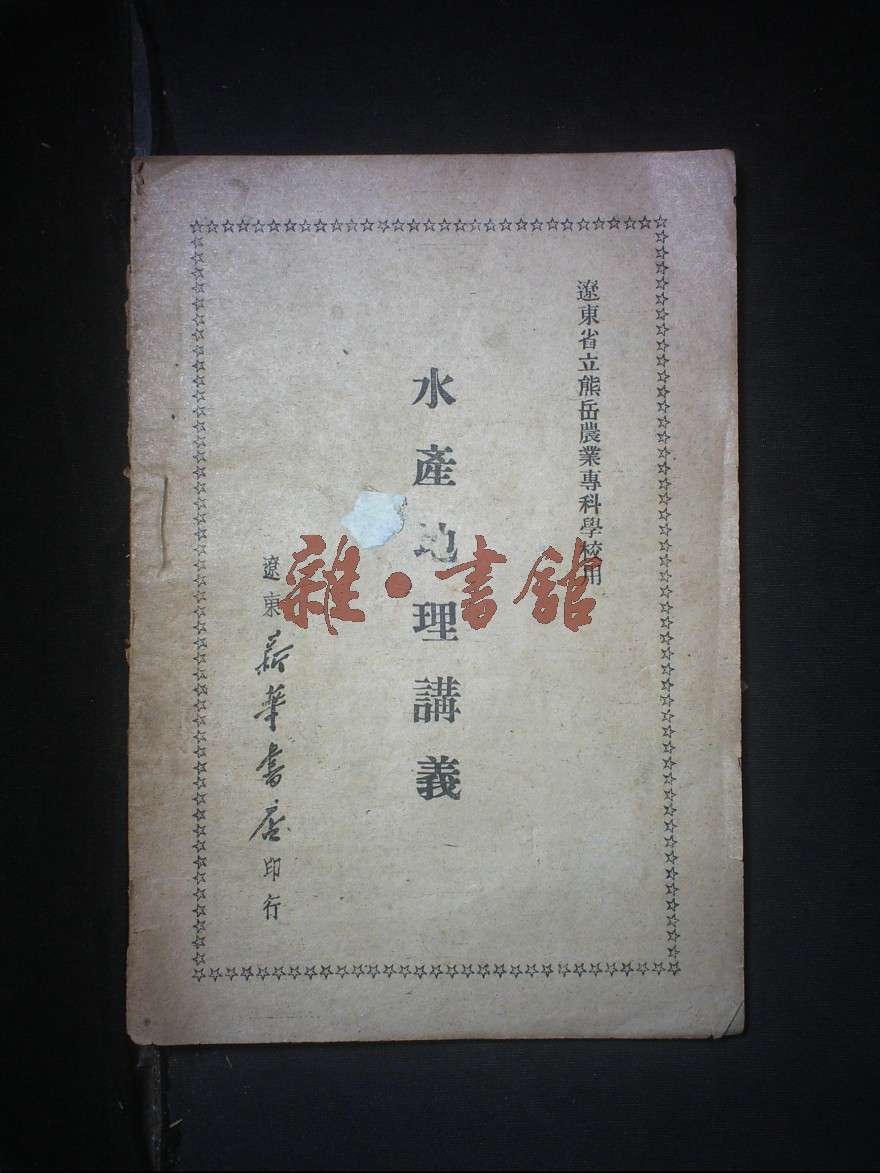 遼東省立熊岳農業專科學校用
水產地理講義
遼東新華書店印行
雜·書舘